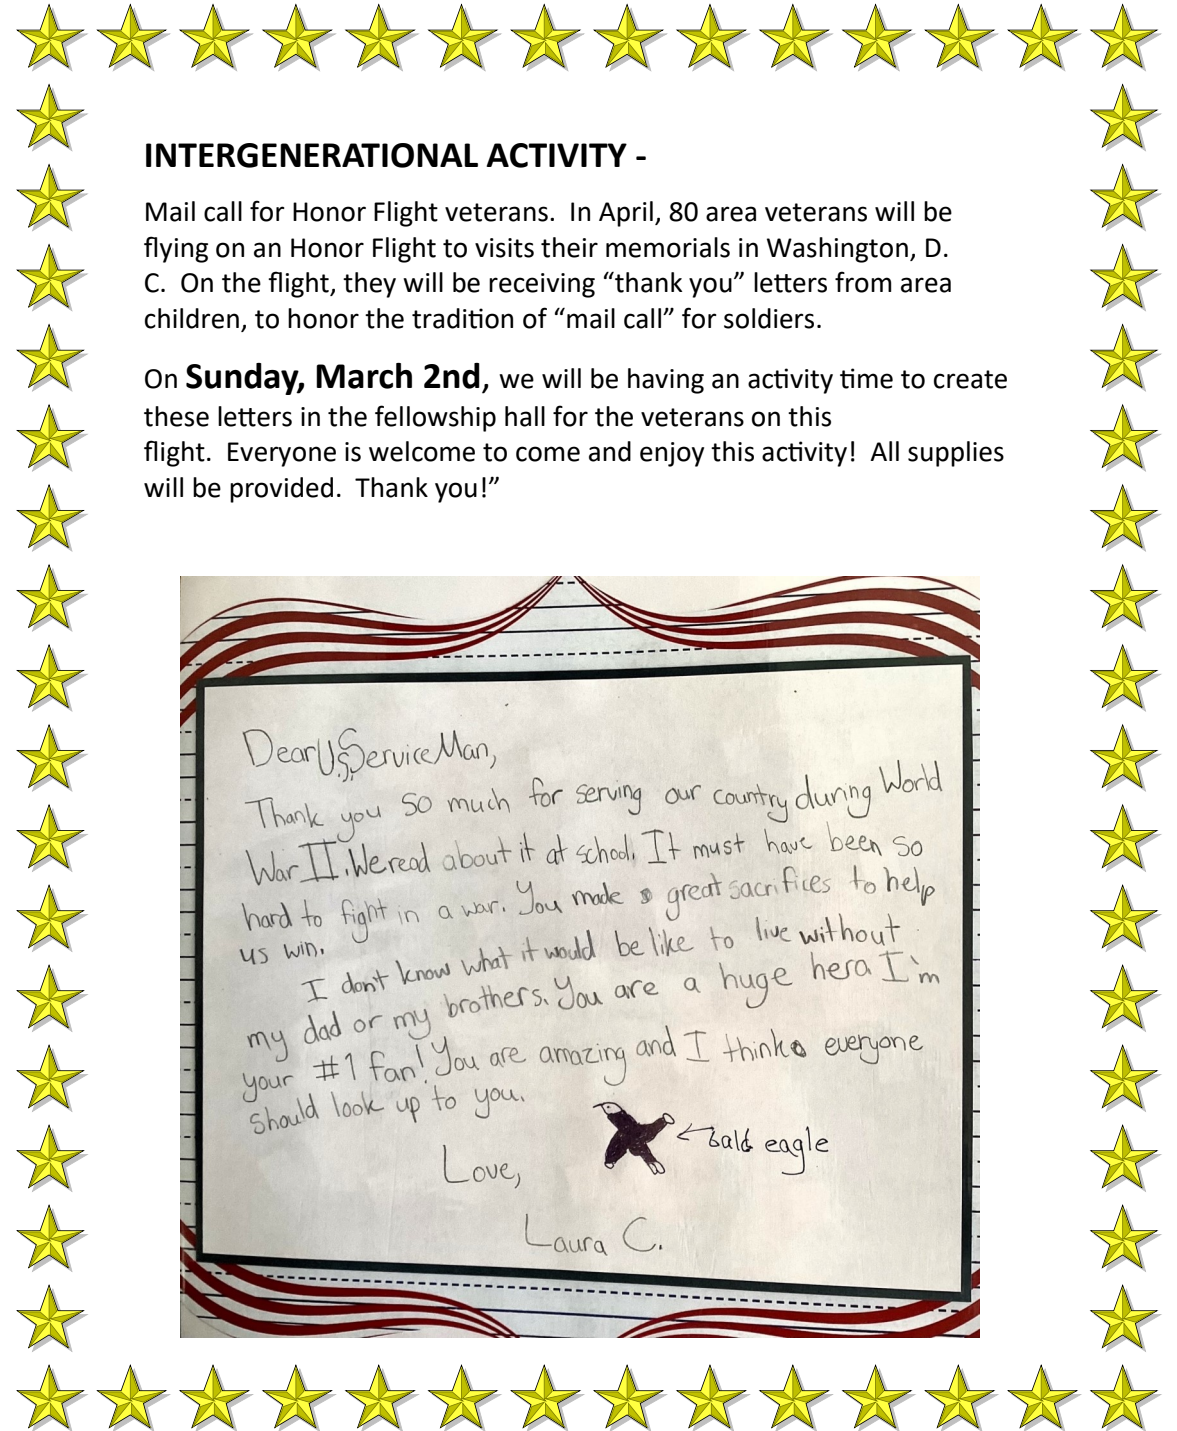 INTERGENERATIONAL ACTIVITY -
Mail call for Honor Flight veterans.  In April, 80 area veterans will be
flying on an Honor Flight to visits their memorials in Washington, D.
C.  On the flight, they will be receiving “thank you” letters from area
children, to honor the tradition of “mail call” for soldiers.
On Sunday, March 2nd, we will be having an activity time to create
these letters in the fellowship hall for the veterans on this
flight.  Everyone is welcome to come and enjoy this activity!  All supplies
will be provided.  Thank you!”
Dear U.S. Service Man,
Thank you so much for serving our country during World
War II. We read about it at school. It must have been so
hard to fight in a war. You made great sacrifices to help
us win.
I don't know what it would be like to live without
my dad or my brothers. You are a huge hero. I'm
your #1 fan! You are amazing and I think everyone
should look up to you.
bald eagle
Love,
Laura C.